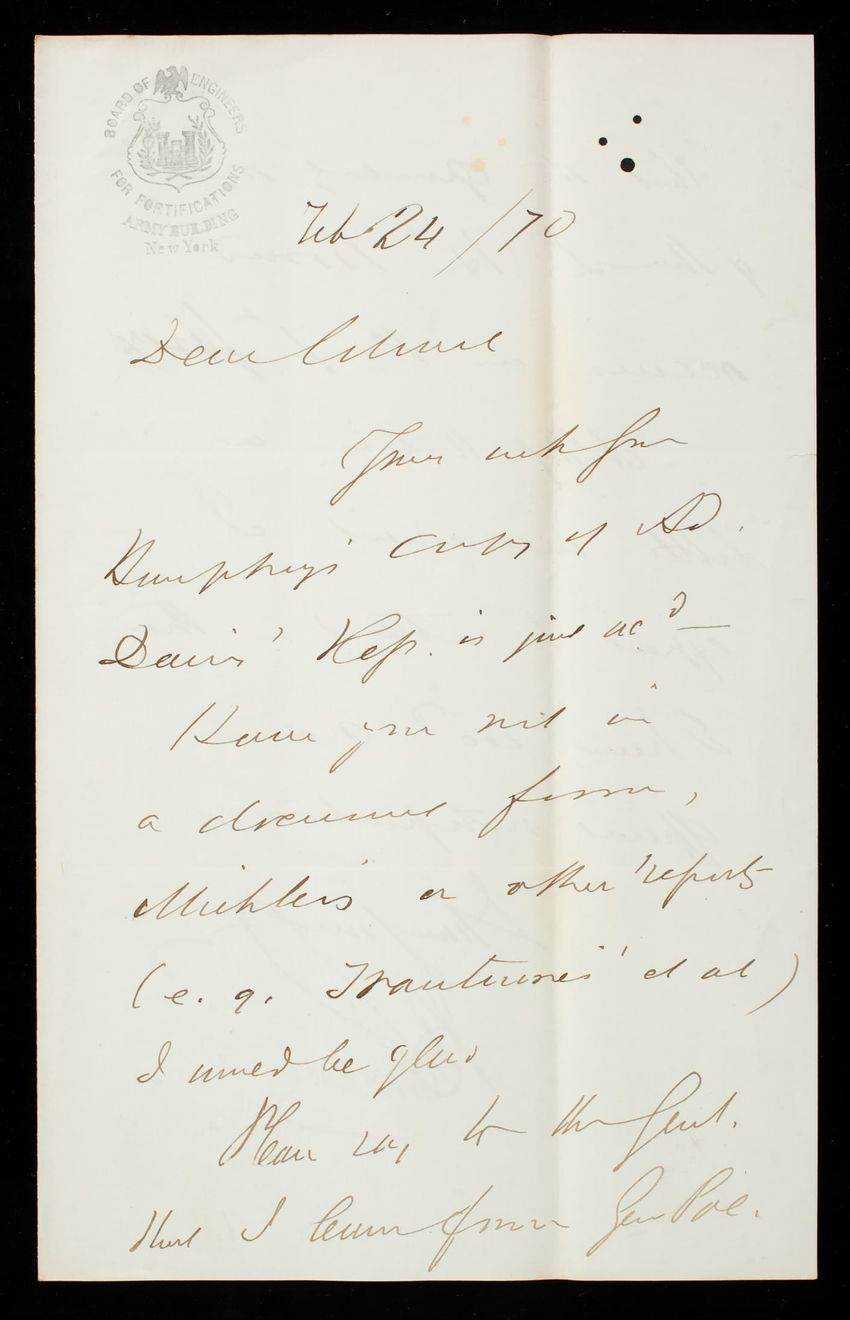 BOARD OF ENGINEERS
FOR FORTIFICATIONS
ARMY BUILDING
New York
Feb 24/70
Dear Colonel
Yours with Gen
Humphreys' copy of Ad.
Davis' Rep. is just recd —
Have you not in
a document form,
Michler's or other reports
(e.g. Trautwine's et al)
I would be glad
Please say to the Genl.
that I learn from Gen Poe.